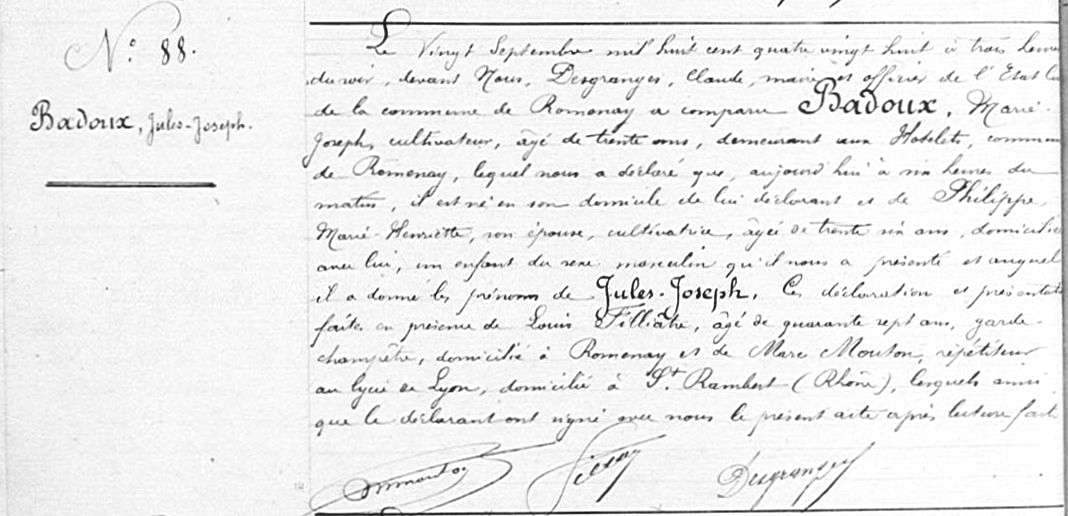 N.° 88.
Badoux, Jules-Joseph.
Le vingt Septembre mil huit cent quatre vingt huit à trois heures
du soir, devant Nous, Desgranges, Claude, maire et officier de l'Etat
de la commune de Romenay a comparu Badoux, Marie-
Joseph, cultivateur, âgé de trente ans, demeurant aux Hotelets, commune
de Romenay, lequel nous a déclaré que, aujourd'hui à six heures du
matin, il est né en son domicile de lui déclarant et de Philippe,
Marie-Henriette, son épouse, cultivatrice, âgée de trente six ans, domiciliée
avec lui, un enfant du sexe masculin qu'il nous a présenté et auquel
il a donné les prénoms de Jules-Joseph. Ces déclaration et présentation
faites en présence de Louis Filliâtre, âgé de quarante sept ans, garde-
champêtre, domicilié à Romenay et de Marc Mouton, répétiteur
au lycée de Lyon, domicilié à St. Rambert (Rhône), lesquels ainsi
que le déclarant ont signé avec nous le présent acte après lecture faite
Desgranges